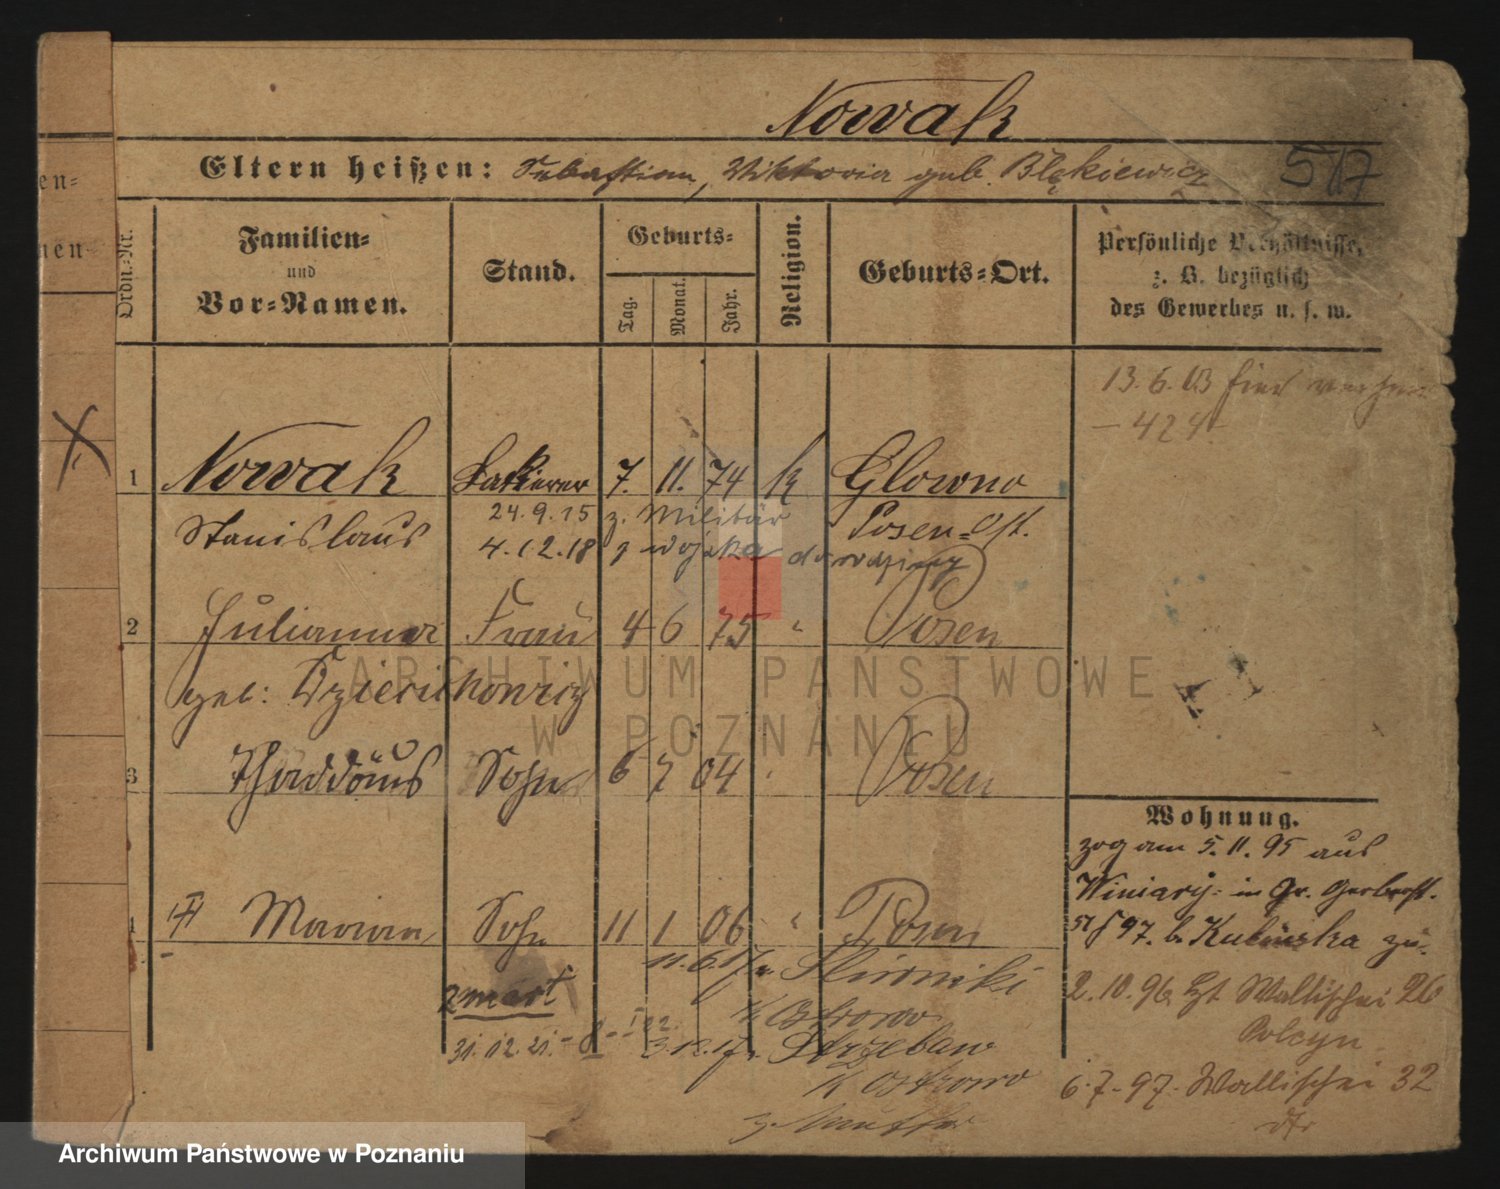 Nowak
Eltern heißen: Sebastian, Viktoria geb. Blękiewicz
517
en=
nen=
Ordn.-Nr.
Familien=
und
Vor=Namen.
Stand.
Geburts=
Tag.
Monat.
Jahr.
Religion.
Geburts=Ort.
Persönliche Verhältnisse,
z. B. bezüglich
des Gewerbes u. s. w.
13.6.03
424
1 Nowak Lakierer 7. 11. 74 k Glowno
Stanislaus 24.9.15 z. Militär Posen=Ost.
4.12.18 z wojska do rodziny
2 Julianna Frau 4 6 75 " Posen
geb:
3 Thaddäus Sohn 6 7 04 " Posen
Wohnung.
zog am 5.11.95 aus
Winiary= in Gr. Gerberst.
4 Marian Sohn 11 1 06 " Posen
97. b. Kubinska zu.
11.6.17
zmarł
31.12.21.
2.10.96 Wallischei 26
Polcyn
3.12.17 Strzebaw
K Ostrowo
6.7.97. Wallischei 32
z. Mutter
ARCHIWUM PAŃSTWOWE
W POZNANIU
Archiwum Państwowe w Poznaniu